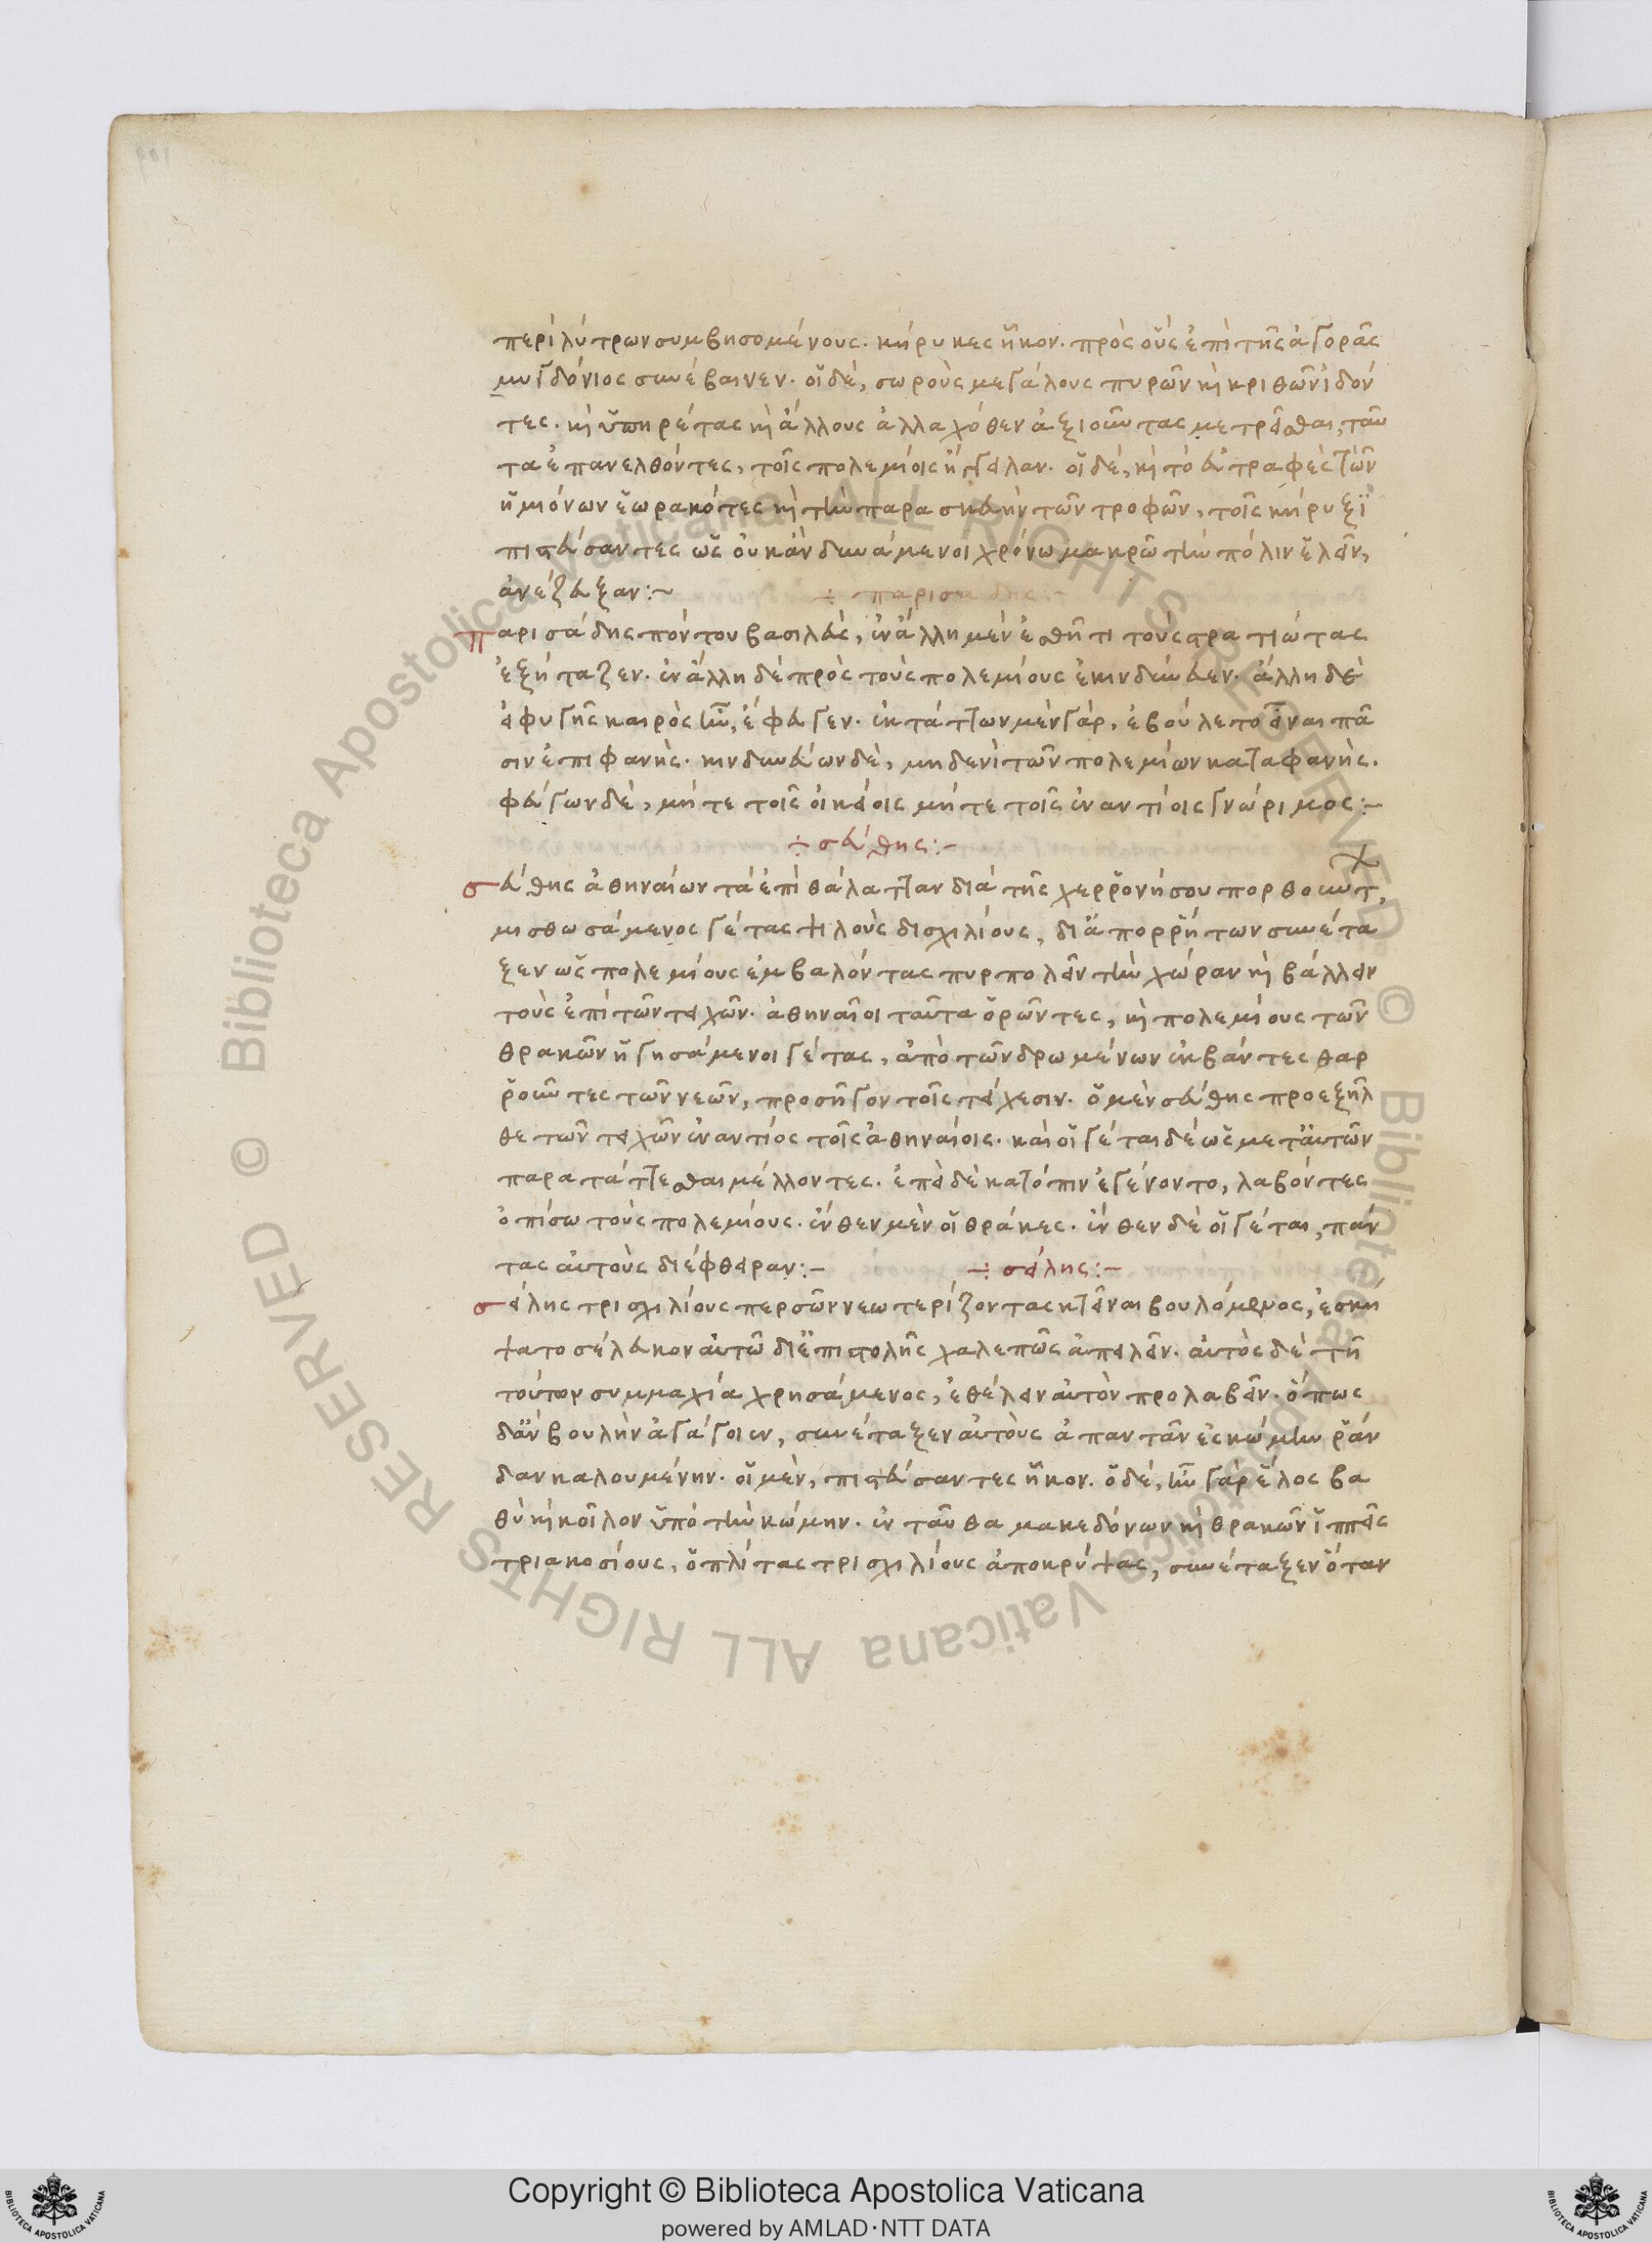 περὶ λύτρων συμβησομένους. κήρυκες ἧκον. πρὸς οὓς ἐπὶ τῆς ἀγορᾶς
μυγδόνιος συνέβαινεν. οἱ δὲ, σωροὺς μεγάλους πυρῶν κὶ κριθῶν ἰδόν
τες. κὶ ὑπηρέτας κὶ ἄλλους ἀλλαχόθεν ἀξιοῦντας μετρεῖσθαι, ταῦ
τα ἐπανελθόντες, τοῖς πολεμίοις ἤγγειλαν. οἱ δὲ, κὶ τὸ εὐτραφὲς τῶν
ἡμιόνων ἑωρακότες κὶ τὴν παρασκευὴν τῶν τροφῶν, τοῖς κήρυξι
πιστεύσαντες ὡς οὐκ ἂν δυνάμενοι χρόνω μακρῶ τὴν πόλιν ἑλεῖν,
ἀνέζευξαν:~ ÷ παρισαδης:~
παρισάδης πόντου βασιλεὺς, ἐν ἄλλη μὲν ἐσθῆτι τοὺς στρατιώτας
ἐξήταζεν. ἐν ἄλλη δὲ πρὸς τοὺς πολεμίους ἐκινδύνευεν. ἄλλη δὲ
εἰ φυγῆς καιρὸς ἦν, ἔφευγεν. ἐκτάττων μὲν γὰρ, ἐβούλετο εἶναι πᾶ
σιν ἐπιφανὴς. κινδυνεύων δὲ, μηδενὶ τῶν πολεμίων καταφανὴς.
φεύγων δὲ, μήτε τοῖς οἰκείοις μήτε τοῖς ἐναντίοις γνώριμος:~
÷ σεύθης:~
σεύθης ἀθηναίων τὰ ἐπὶ θάλατταν διὰ τῆς χερρονήσου πορθούντ,
μισθωσάμενος γέτας ψιλοὺς δισχιλίους, δι ἀπορρήτων συνέτα
ξεν ὡς πολεμίους ἐμβαλόντας πυρπολεῖν τὴν χώραν κὶ βάλλειν
τοὺς ἐπὶ τῶν τειχῶν. ἀθηναῖοι ταῦτα ὁρῶντες, κὶ πολεμίους τῶν
θρακῶν ἡγησάμενοι γέτας, ἀπὸ τῶν δρωμένων ἐκβάντες θαρ
ροῦντες τῶν νεῶν, προσῆγον τοῖς τείχεσιν. ὁ μὲν σεύθης προεξῆλ
θε τῶν τειχῶν ἐναντίος τοῖς ἀθηναίοις. καὶ οἱ γέται δὲ ὡς μετ αὐτῶν
παρατάττεσθαι μέλλοντες. ἐπεὶ δὲ κατόπιν ἐγένοντο, λαβόντες
ὀπίσω τοὺς πολεμίους. ἔνθεν μὲν οἱ θρᾶκες. ἔνθεν δὲ οἱ γέται, πάν
τας αὐτοὺς διέφθειραν:~ ÷ σείλης:~
σείλης τρισχιλίους περσῶν νεωτερίζοντας κτεῖναι βουλόμενος, ἐσκή
ψατο σέλευκον αὐτῶ δι ἐπιστολῆς χαλεπῶς ἀπειλεῖν. αὐτὸς δὲ τῆ
τούτων συμμαχία χρησάμενος, ἐθέλειν αὐτὸν προλαβεῖν. ὅπως
δ ἂν βουλὴν ἀγάγοιεν, συνέταξεν αὐτοὺς ἀπαντᾶν ἐς κώμην ῥάν
δαν καλουμένην. οἱ μὲν, πιστεύσαντες ἧκον. ὁ δὲ, ἦν γὰρ ἕλος βα
θὺ κὶ κοῖλον ὑπὸ τὴν κώμην. ἐνταῦθα μακεδόνων κὶ θρακῶν ἱππεῖς
τριακοσίους, ὁπλίτας τρισχιλίους ἀποκρύψας, συνέταξεν ὅταν
Copyright © Biblioteca Apostolica Vaticana
powered by AMLAD·NTT DATA